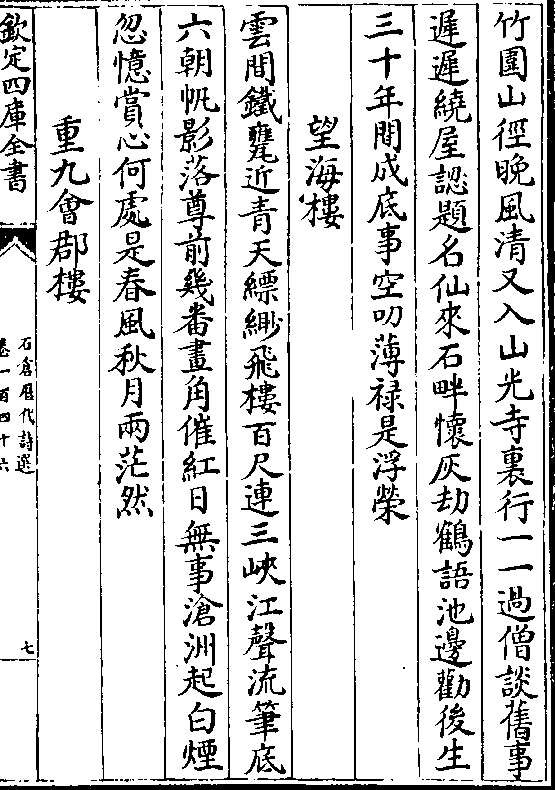 竹圍山徑晚風清又入山光寺裏行一一過僧談舊事
遲遲繞屋認題名仙來石畔懷灰劫鶴語池邊勸後生
三十年間成底事空叨薄祿是浮榮
望海樓
雲間鐵甕近青天縹緲飛樓百尺連三峽江聲流筆底
六朝帆影落尊前幾番畫角催紅日無事滄洲起白煙
忽憶賞心何處是春風秋月兩茫然
重九會郡樓
欽定四庫全書
石倉歷代詩選
卷一百四十六
七